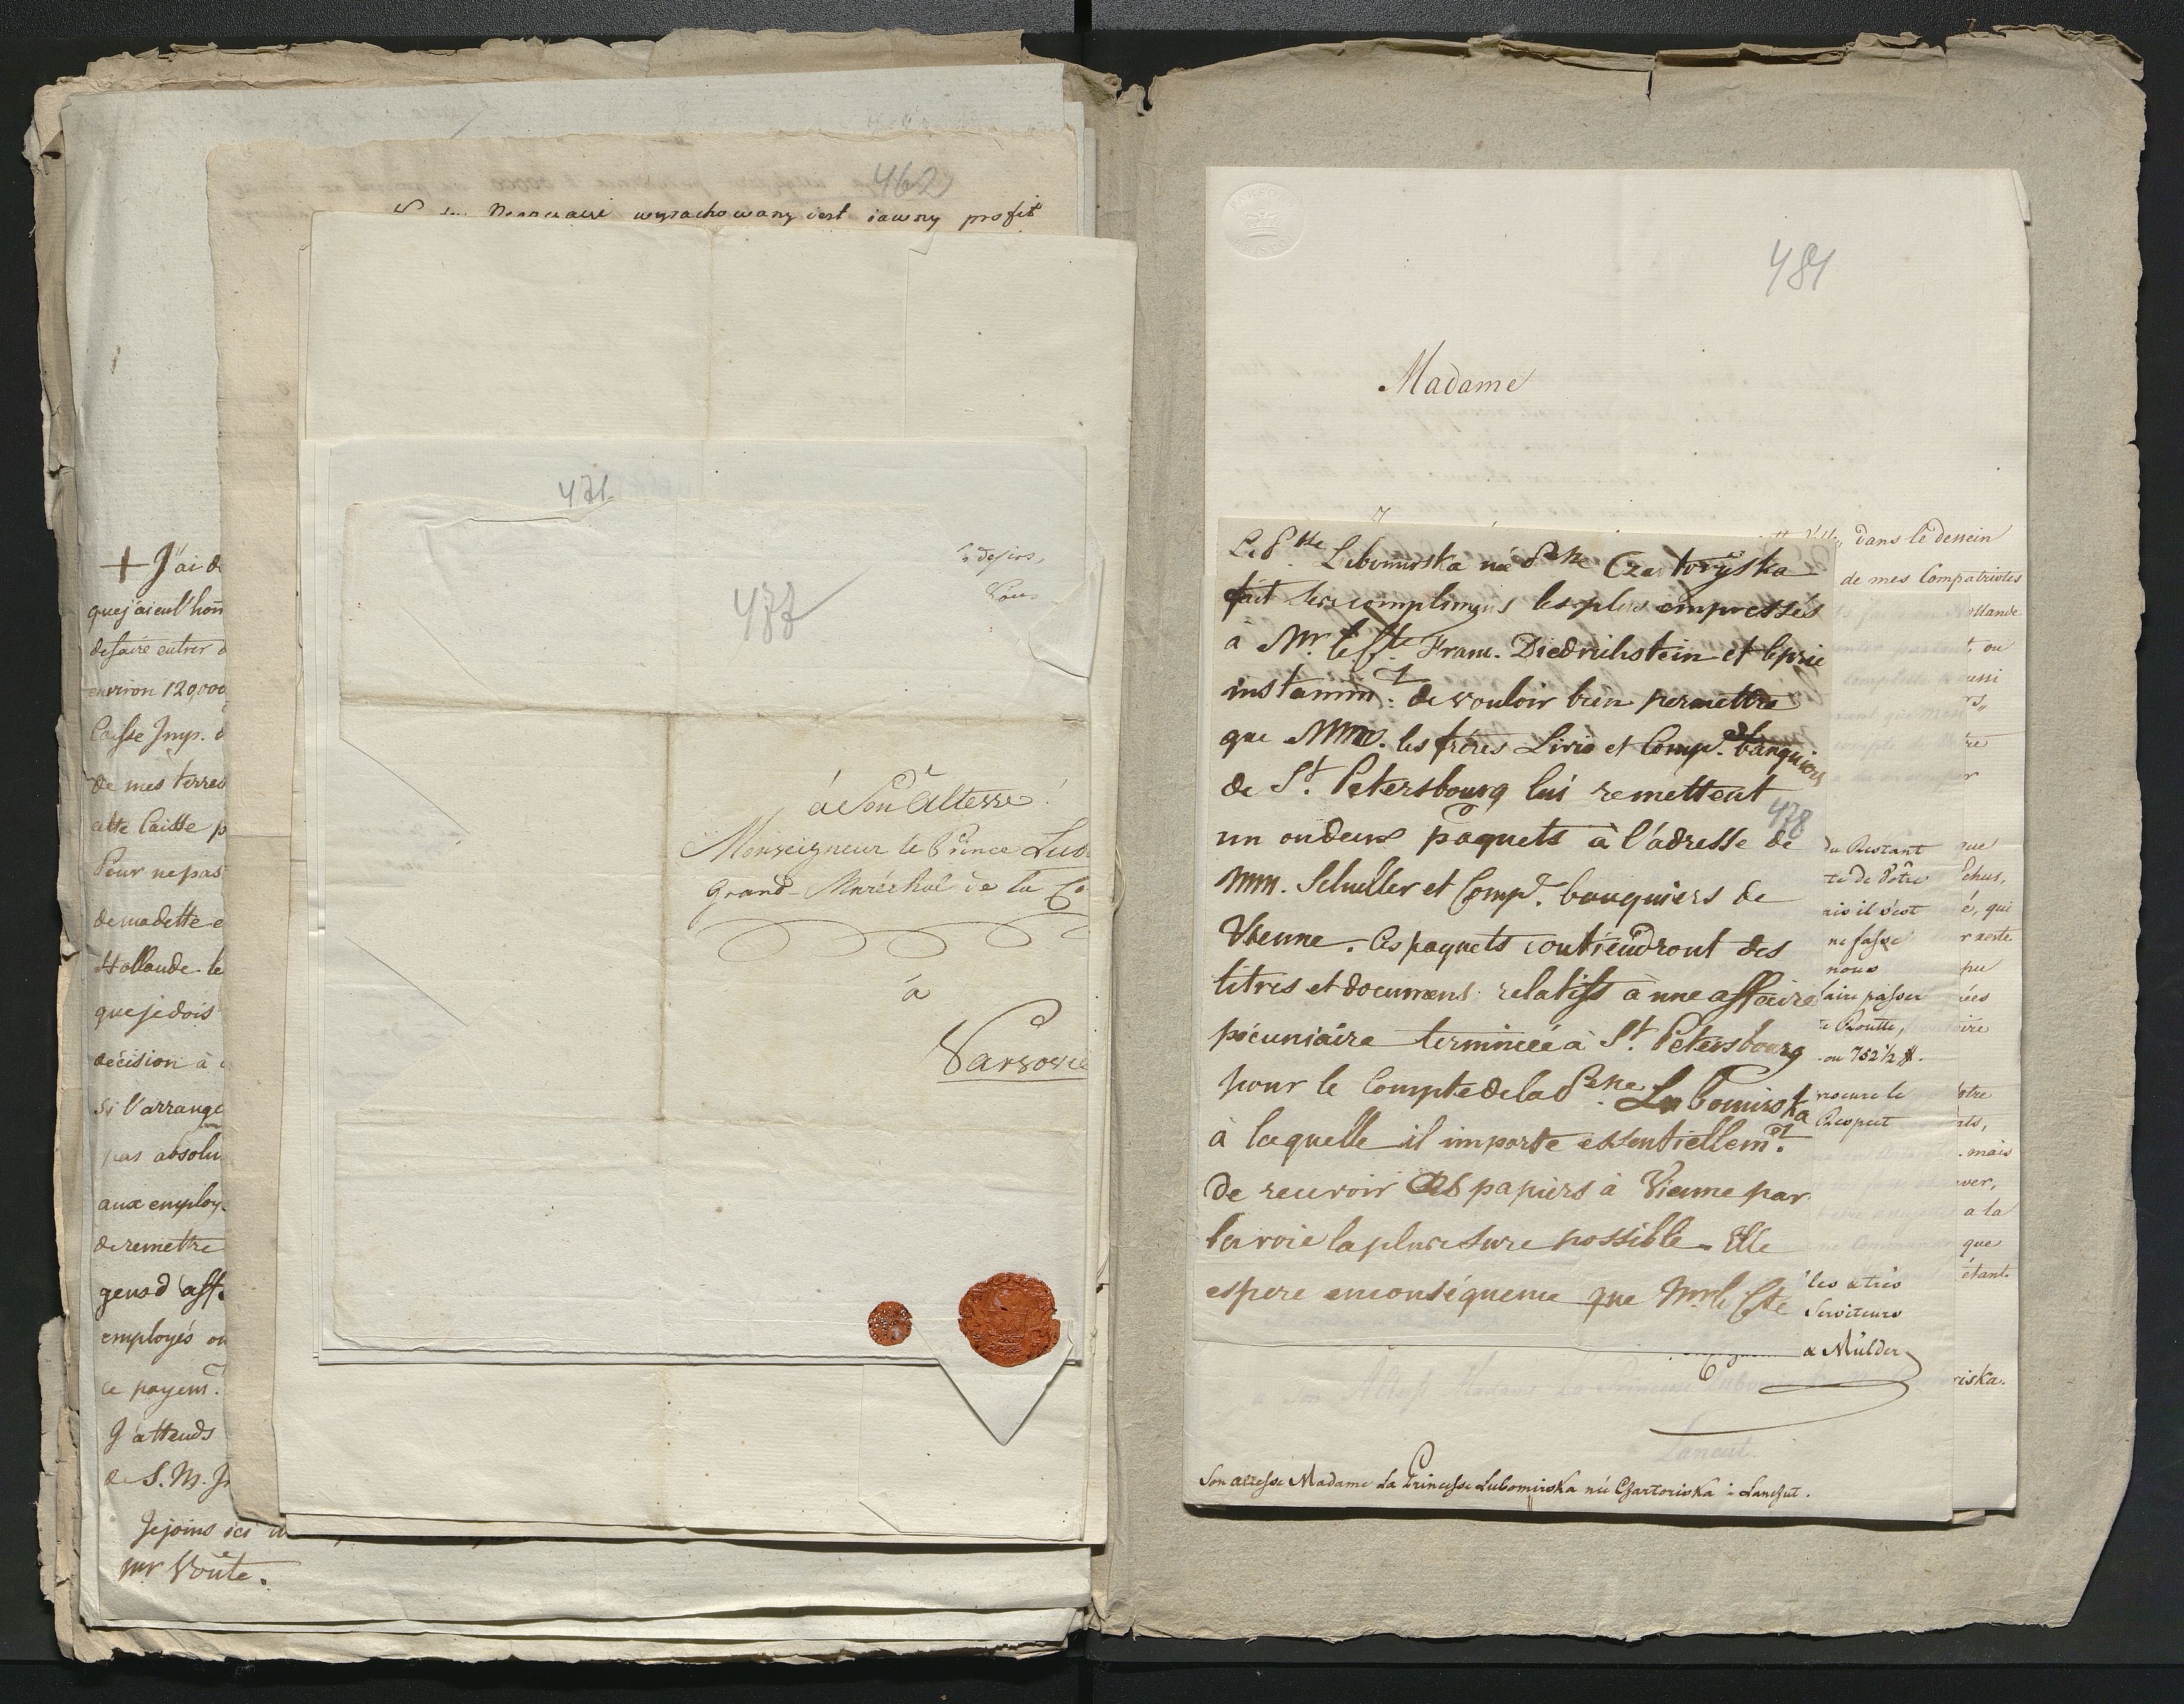 462
wyrachowany iest iawny profit
+ J'ai d
que j'ai eu l'hon
de faire entrer d
environ 120,000
Caisse Imp. d
de mes terres
cette Caisse p
Pour ne pas
de ma dette e
Hollande le
que je dois
décision à
si l'arrange
pas absolu
aux employ
de remettre
gens d'aff.
employés ou
ce payemt.
J'attends
de S. M. I
Je joins ici u
mr Voute.
471
477
à Son Altesse
Monseigneur le Prince Lub
Grand Maréchal de la Co
à
Varsovie
481
Madame
La Psse Lubomirska née Psse Czartoryska
fait ses complimens les plus empressés
à Mr. le Cte Franc. Diedrichstein et le prie
instamm.t de vouloir bien permettre
que Mrs. les frères Livio et Comp. banquiers
de St. Petersbourg lui remettent
un ou deux paquets à l'adresse de
Mrs. Schuller et Comp. banquiers de
Vienne. Ces paquets contiendront des
titres et documens relatifs à une affaire
pécuniaire terminée à St. Petersbourg
pour le Compte de la Psse. Lubomirska
à laquelle il importe essentiellem.t
de recevoir ces papiers à Vienne par
la voie la plus sure possible - Elle
espere en conséquence que Mr le Cte
478
dans le dessein
de mes Compatriotes
ollande
ou
aussi
du Restant
te de Vôtre
ais il s'est
ne fasse
nous
faire passer
ou 752½ #.
rocure le
Respect
les & très
Serviteurs
& Mülder
que
é, qui
r reste
pu
ées
oire
ôtre
mais
ver,
a la
que
étant
riska.
Son altesse Madame La Princesse Lubomirska né Chartoriska à Lanshut.